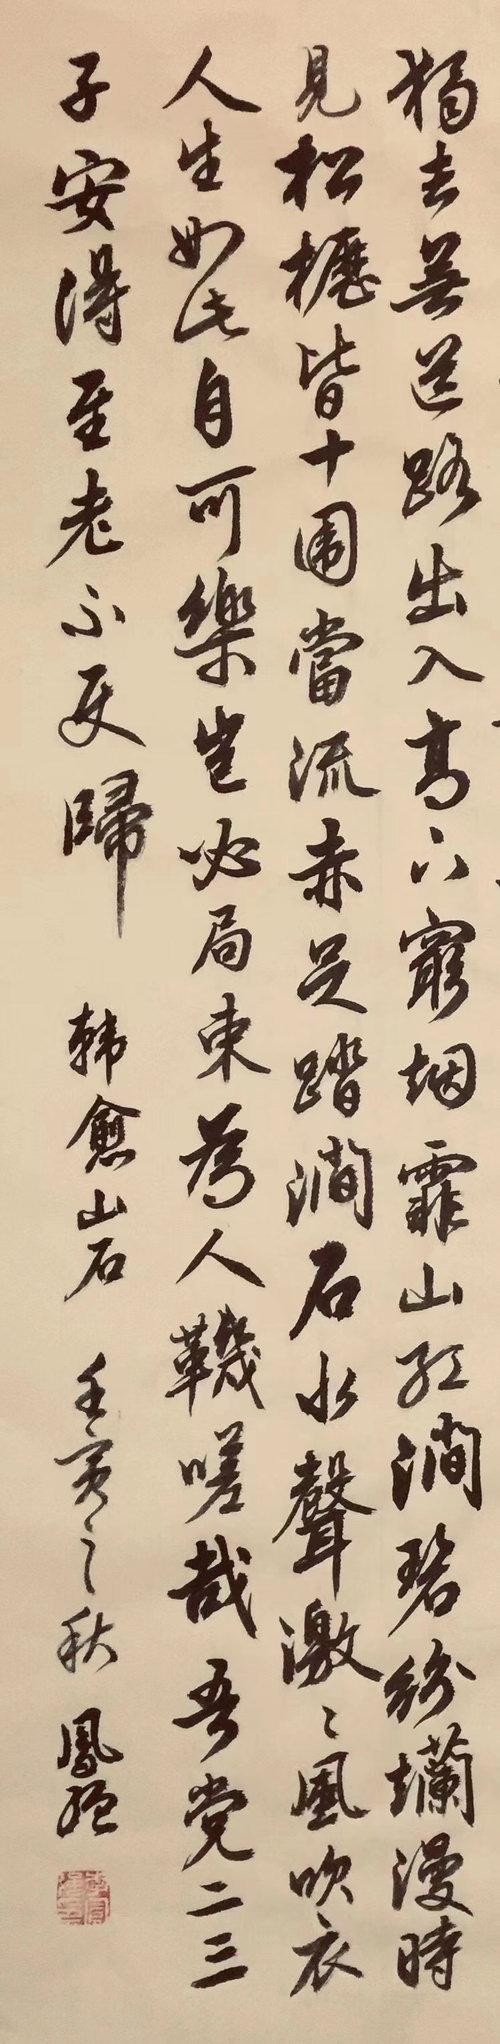 獨去無道路出入高下窮烟霏山紅澗碧紛爛漫時
見松櫪皆十圍當流赤足踏澗石水聲激々風吹衣
人生如此自可樂豈必局束為人鞿嗟哉吾党二三
子安得至老不更歸 韩愈山石 壬寅之秋 鳳